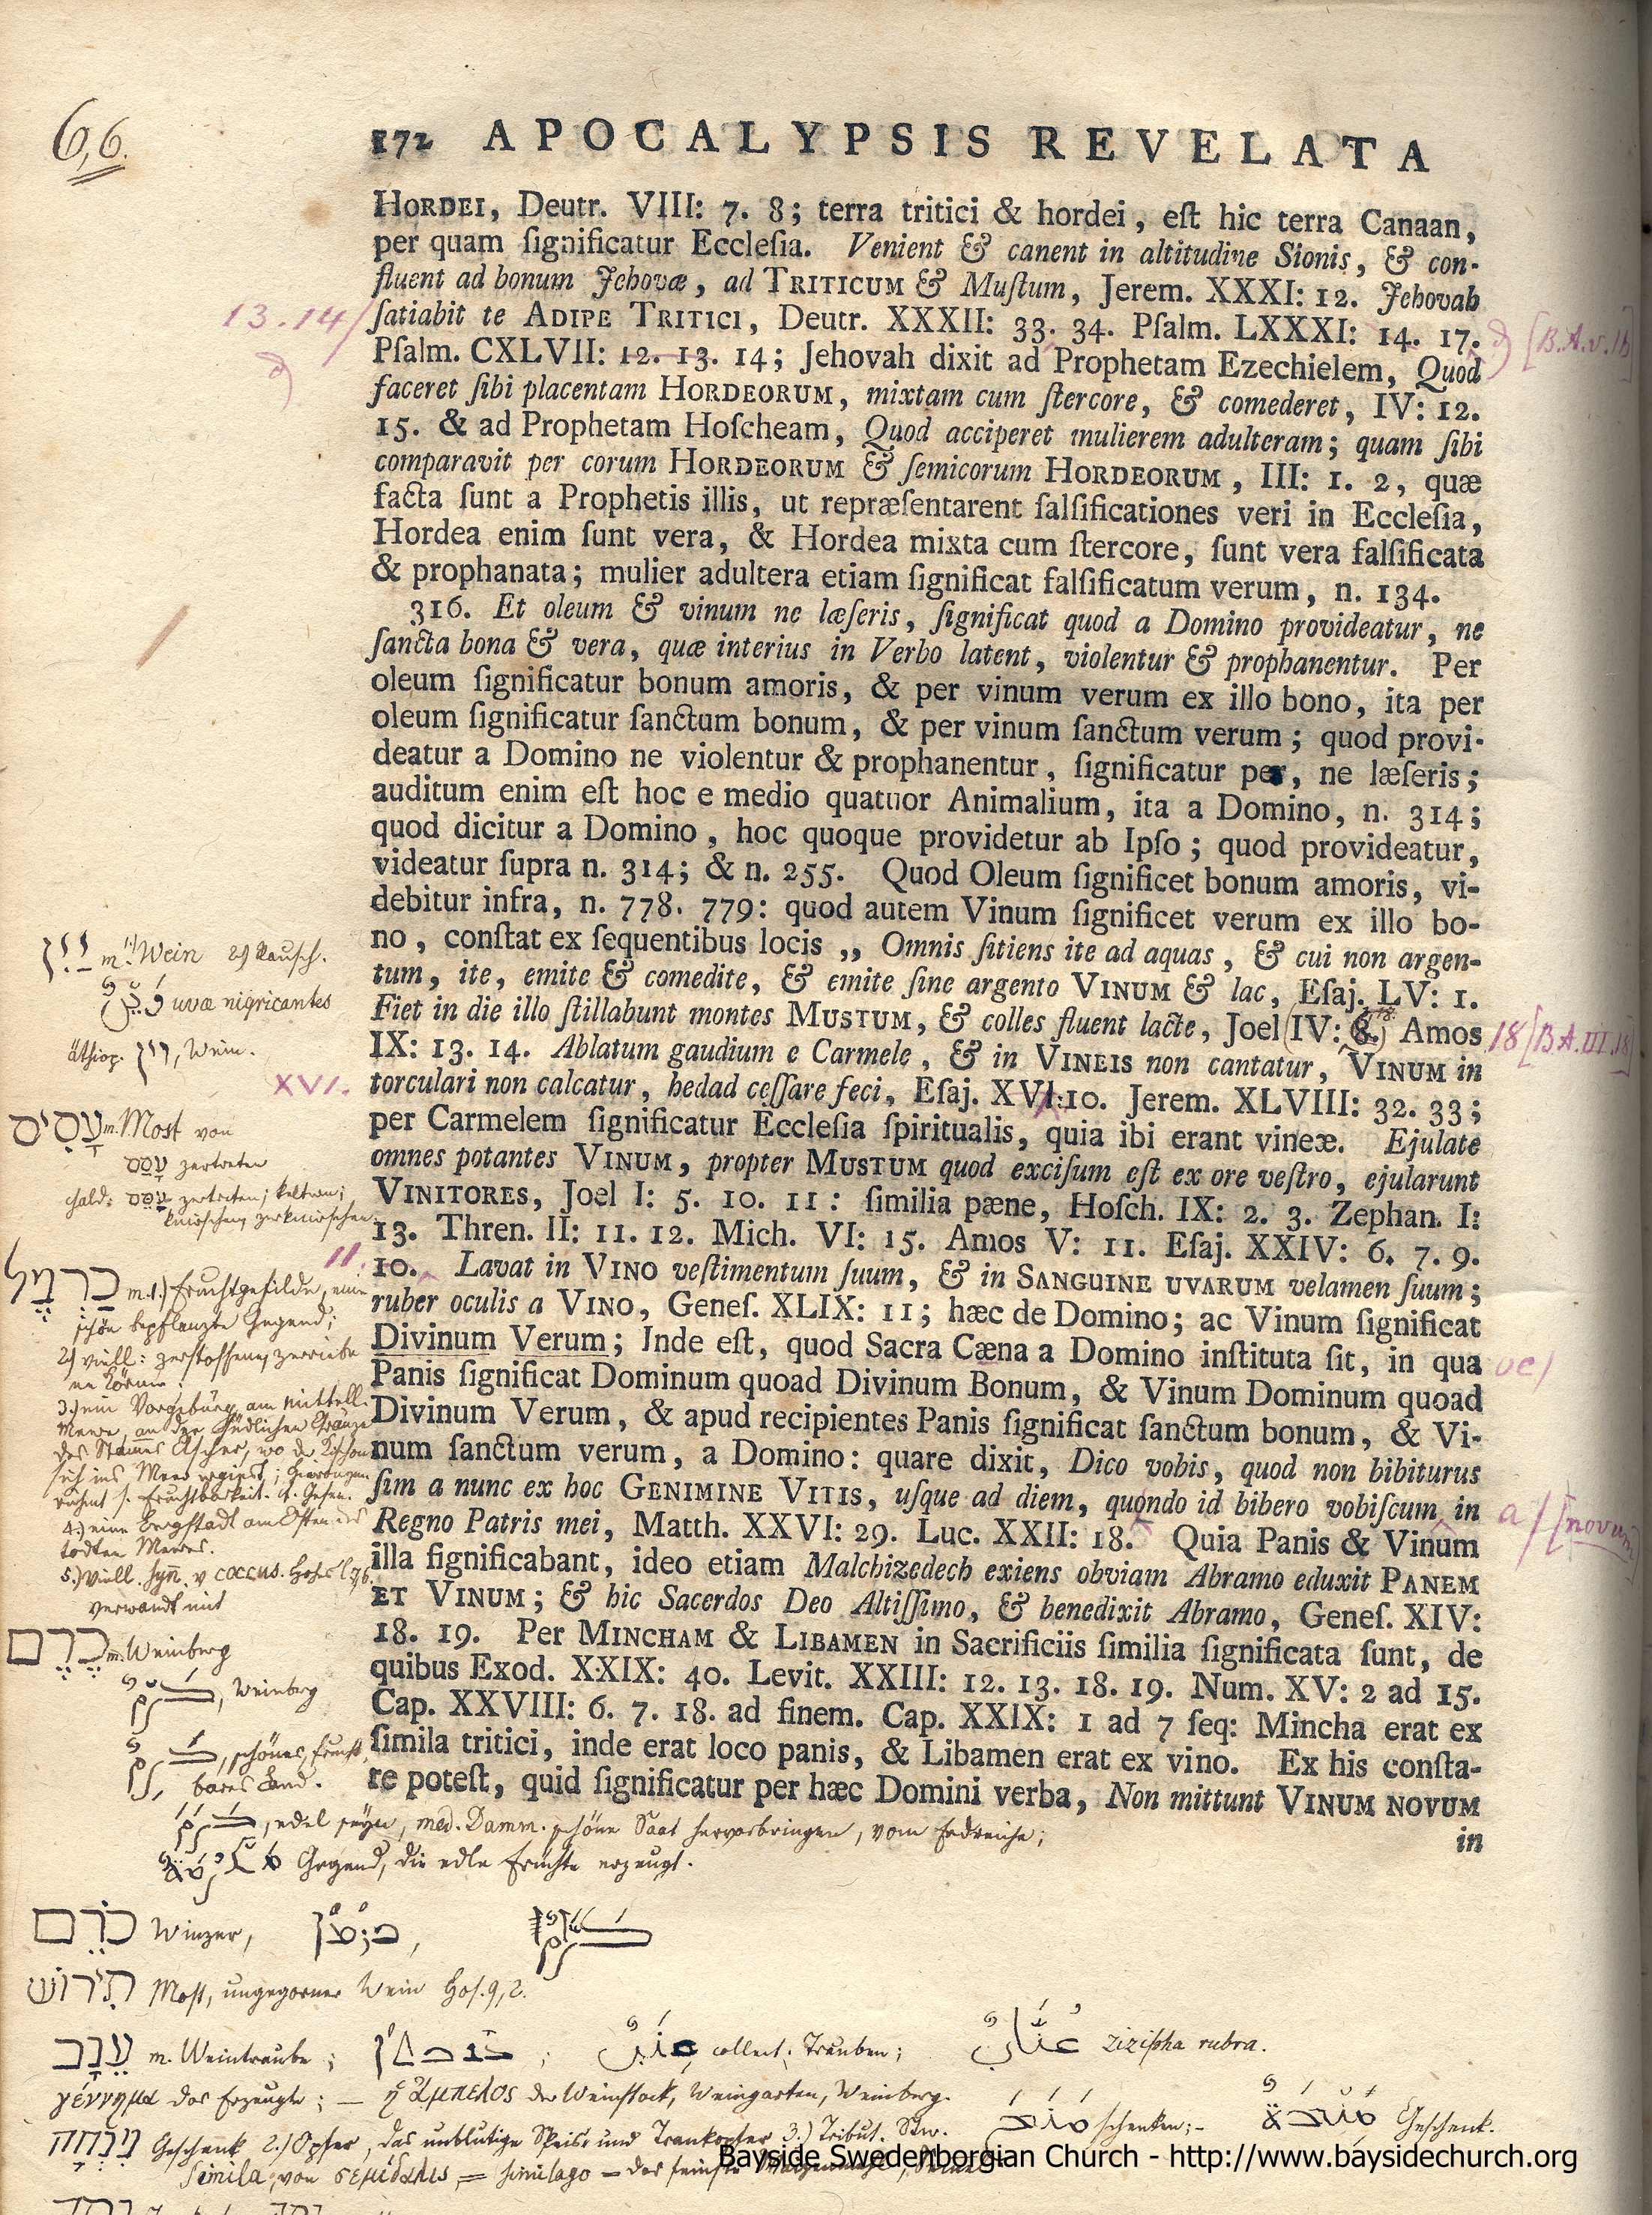 6,6.
172 APOCALYPSIS REVELATA
HORDEI, Deutr. VIII: 7. 8; terra tritici & hordei, eſt hic terra Canaan,
per quam ſignificatur Eccleſia. Venient & canent in altitudine Sionis, & con-
fluent ad bonum Jehovæ, ad TRITICUM & Muſtum, Jerem. XXXI: 12. Jehovah
13.14/
ſatiabit te ADIPE TRITICI, Deutr. XXXII: 33. 34. Pſalm. LXXXI: 14. 17.
Pſalm. CXLVII: 12. 13. 14; Jehovah dixit ad Prophetam Ezechielem, Quod
faceret ſibi placentam HORDEORUM, mixtam cum ſtercore, & comederet, IV: 12.
15. & ad Prophetam Hoſcheam, Quod acciperet mulierem adulteram; quam ſibi
comparavit per corum HORDEORUM & ſemicorum HORDEORUM, III: 1. 2, quæ
facta ſunt a Prophetis illis, ut repræſentarent falſificationes veri in Eccleſia,
Hordea enim ſunt vera, & Hordea mixta cum ſtercore, ſunt vera falſificata
& prophanata; mulier adultera etiam ſignificat falſificatum verum, n. 134.
316. Et oleum & vinum ne læſeris, ſignificat quod a Domino provideatur, ne
ſancta bona & vera, quæ interius in Verbo latent, violentur & prophanentur. Per
oleum ſignificatur bonum amoris, & per vinum verum ex illo bono, ita per
oleum ſignificatur ſanctum bonum, & per vinum ſanctum verum; quod provi-
deatur a Domino ne violentur & prophanentur, ſignificatur per, ne læſeris;
auditum enim eſt hoc e medio quatuor Animalium, ita a Domino, n. 314;
quod dicitur a Domino, hoc quoque providetur ab Ipſo; quod provideatur,
videatur ſupra n. 314; & n. 255. Quod Oleum ſignificet bonum amoris, vi-
debitur infra, n. 778. 779: quod autem Vinum ſignificet verum ex illo bo-
no, conſtat ex ſequentibus locis ,, Omnis ſitiens ite ad aquas, & cui non argen-
tum, ite, emite & comedite, & emite ſine argento VINUM & lac, Eſaj. LV: 1.
Fiet in die illo ſtillabunt montes MUSTUM, & colles fluent lacte, Joel IV: 8. Amos
IX: 13. 14. Ablatum gaudium e Carmele, & in VINEIS non cantatur, VINUM in
torculari non calcatur, hedad ceſſare feci, Eſaj. XVI: 10. Jerem. XLVIII: 32. 33;
per Carmelem ſignificatur Eccleſia ſpiritualis, quia ibi erant vineæ. Ejulate
omnes potantes VINUM, propter MUSTUM quod exciſum eſt ex ore veſtro, ejularunt
VINITORES, Joel I: 5. 10. 11: ſimilia pæne, Hoſch. IX: 2. 3. Zephan. I:
13. Thren. II: 11. 12. Mich. VI: 15. Amos V: 11. Eſaj. XXIV: 6. 7. 9.
10. Lavat in VINO veſtimentum ſuum, & in SANGUINE UVARUM velamen ſuum;
ruber oculis a VINO, Geneſ. XLIX: 11; hæc de Domino; ac Vinum ſignificat
Divinum Verum; Inde eſt, quod Sacra Cæna a Domino inſtituta ſit, in qua
Panis ſignificat Dominum quoad Divinum Bonum, & Vinum Dominum quoad
Divinum Verum, & apud recipientes Panis ſignificat ſanctum bonum, & Vi-
num ſanctum verum, a Domino: quare dixit, Dico vobis, quod non bibiturus
ſim a nunc ex hoc GENIMINE VITIS, uſque ad diem, quondo id bibero vobiſcum in
Regno Patris mei, Matth. XXVI: 29. Luc. XXII: 18. Quia Panis & Vinum
illa ſignificabant, ideo etiam Malchizedech exiens obviam Abramo eduxit PANEM
ET VINUM; & hic Sacerdos Deo Altiſſimo, & benedixit Abramo, Geneſ. XIV:
18. 19. Per MINCHAM & LIBAMEN in Sacrificiis ſimilia ſignificata ſunt, de
quibus Exod. XXIX: 40. Levit. XXIII: 12. 13. 18. 19. Num. XV: 2 ad 15.
Cap. XXVIII: 6. 7. 18. ad finem. Cap. XXIX: 1 ad 7 ſeq: Mincha erat ex
ſimila tritici, inde erat loco panis, & Libamen erat ex vino. Ex his conſta-
re poteſt, quid ſignificatur per hæc Domini verba, Non mittunt VINUM NOVUM
in
18 [B.A.III.18]
XVI.
11.
a/ [novum]
יין m. 1) Wein 2) Rausch.
uvæ nigricantes
äthiop. Wein.
עָסִיס m. Most von
עסס zertreten
chald: עסס zertreten; keltern;
knirschen, zerknirschen
כַּרְמֶל m. 1.) Fruchtgefilde, eine
schön bepflanzte Gegend;
2) viell: zerstoßene, zerriebe
ne Körner.
3.) ein Vorgebürg am mittell.
Meere, an der südlichen Gränze
des Stames Ascher, wo der Kischon
sich ins Meer ergiest;
4.) eine Bergstadt am Osten des
todten Meeres.
verwandt mit
כֶּרֶם m. Weinberg
Weinberg
schönes, frucht
bares Land.
edel seyn, med. Damm. schöne Saat hervorbringen, vom Erdreiche;
Gegend, die edle Früchte erzeugt.
כֹּרֵם Winzer,
תִּירוֹשׁ Most, ungegorner Wein Hos. 9, 2.
עֵנָב m. Weintraube; collect: Trauben; zizipha rubra.
γέννημα das Erzeugte; — ἡ ἄμπελος der Weinstock, Weingarten, Weinberg.
מִנְחָה Geschenk 2.) Opfer, das unblutige Speise und Trankopfer 3.) Tribut. Stw. schenken; - Geschenk.
Simila, von σεμίδαλις = similago = das feinste
Bayside Swedenborgian Church - http://www.baysidechurch.org